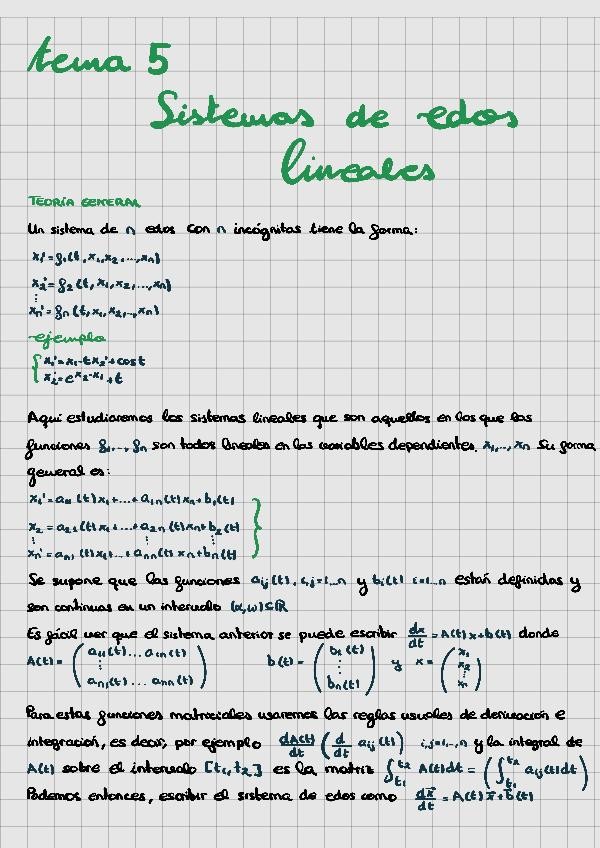 tema 5
Sistemas de edos
lineales
TEORÍA GENERAL
Un sistema de n edos con n incógnitas tiene la forma:
x₁' = f₁(t, x₁, x₂, ..., xₙ)
x₂' = f₂(t, x₁, x₂, ..., xₙ)
⋮
xₙ' = fₙ(t, x₁, x₂, ..., xₙ)
ejemplo
{ x₁' = x₁ - t x₂' + cos t
x₂' = e^x₂ - x₁ + t
Aquí estudiaremos los sistemas lineales que son aquellos en los que las
funciones f₁, ..., fₙ son todas lineales en las variables dependientes. x₁, ..., xₙ Su forma
general es:
x₁' = a₁₁(t)x₁ + ... + a₁ₙ(t)xₙ + b₁(t) }
x₂ = a₂₁(t)x₁ + ... + a₂ₙ(t)xₙ + b₂(t)
⋮ ⋮ ⋮
xₙ' = aₙ₁(t)x₁ + ... + aₙₙ(t)xₙ + bₙ(t)
Se supone que las funciones aᵢⱼ(t), i,j=1...n y bᵢ(t) i=1...n están definidas y
son continuas en un intervalo (α,ω)⊆ℝ
Es fácil ver que el sistema anterior se puede escribir dx/dt = A(t)x + b(t) donde
A(t) = ( a₁₁(t) ... a₁ₙ(t) ⋮ aₙ₁(t) ... aₙₙ(t) ) b(t) = ( b₁(t) ⋮ bₙ(t) ) y x = ( x₁ x₂ ⋮ xₙ )
Para estas funciones matriciales usaremos las reglas usuales de derivación e
integración, es decir, por ejemplo dA(t)/dt ( d/dt aᵢⱼ(t) ) i,j=1,...,n y la integral de
A(t) sobre el intervalo [t₁, t₂] es la matriz ∫t₁^t₂ A(t)dt = ( ∫t₁^t₂ aᵢⱼ(t)dt )
Podemos entonces, escribir el sistema de edos como dx⃗/dt = A(t)x⃗ + b⃗(t)